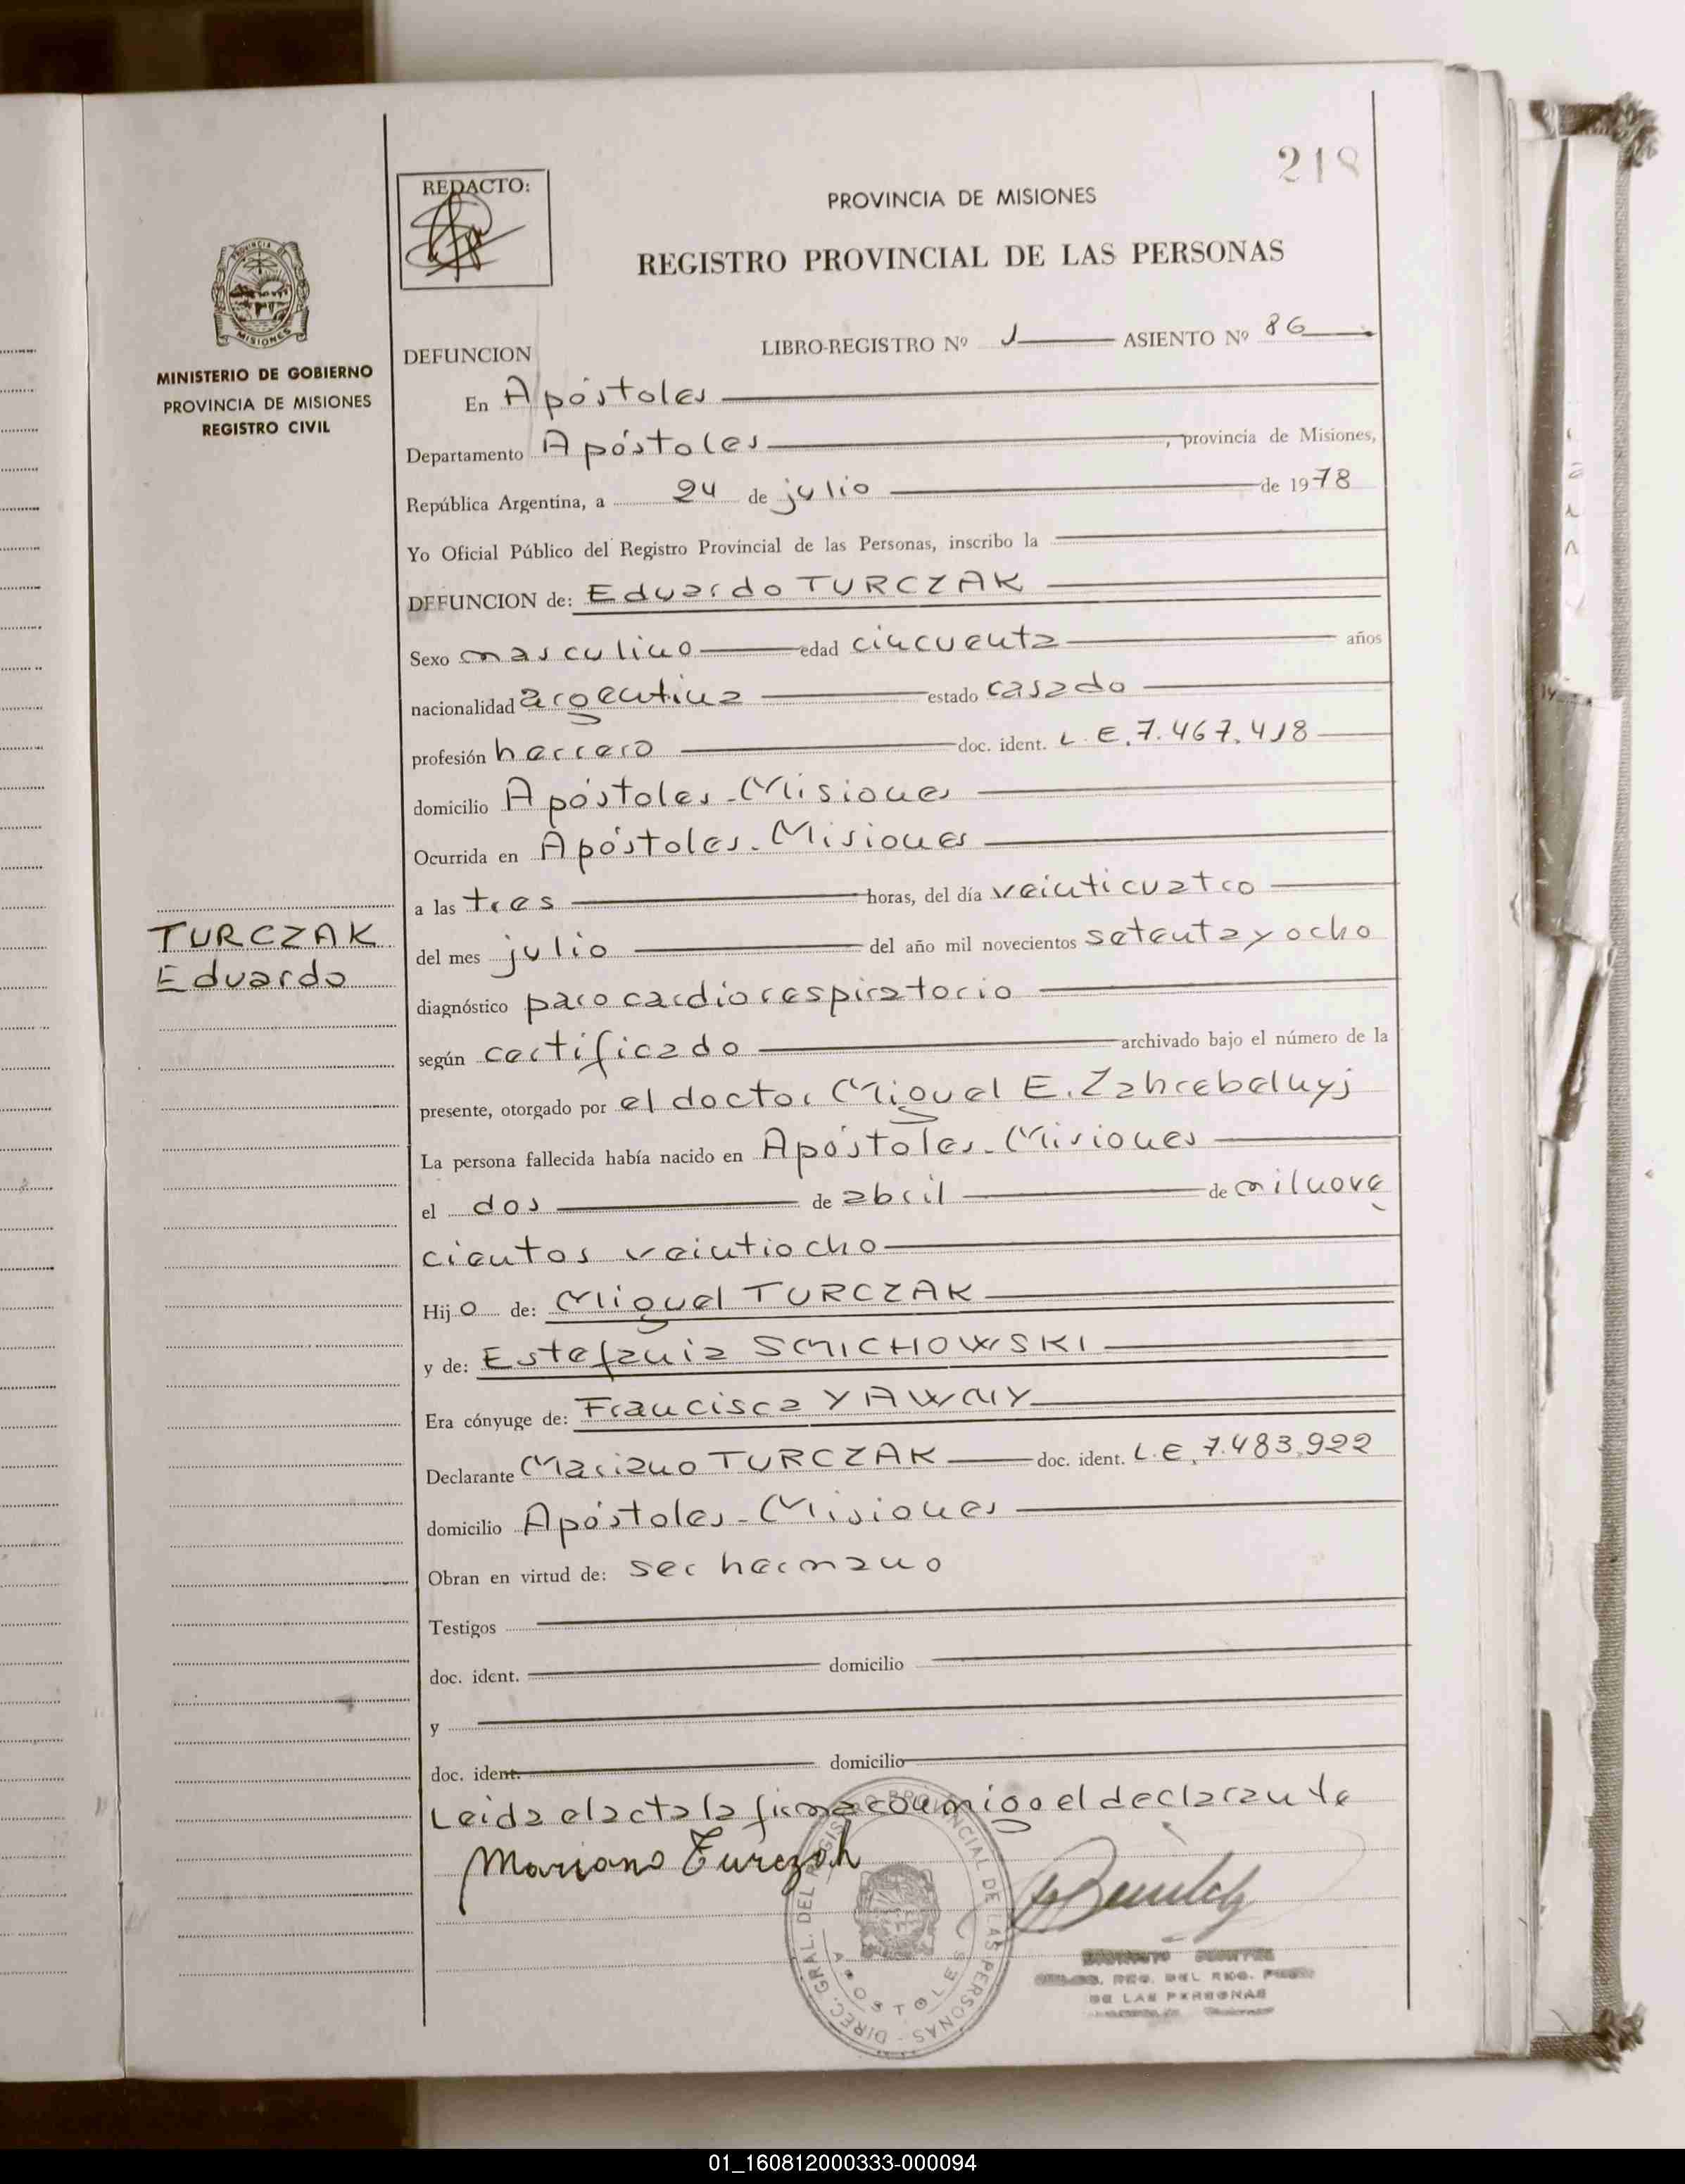 218
REDACTO:
PROVINCIA DE MISIONES
REGISTRO PROVINCIAL DE LAS PERSONAS
PROVINCIA DE
MISIONES
MINISTERIO DE GOBIERNO
PROVINCIA DE MISIONES
REGISTRO CIVIL
DEFUNCION LIBRO-REGISTRO Nº 1 ASIENTO Nº 86
En Apóstoles
Departamento Apóstoles, provincia de Misiones,
República Argentina, a 24 de julio de 1978
Yo Oficial Público del Registro Provincial de las Personas, inscribo la
DEFUNCION de: Eduardo TURCZAK
Sexo masculino edad cincuenta años
nacionalidad argentina estado casado
profesión herrero doc. ident. L.E. 7.467.418
domicilio Apóstoles-Misiones
Ocurrida en Apóstoles-Misiones
a las tres horas, del día veinticuatro
TURCZAK
Eduardo
del mes julio del año mil novecientos setenta y ocho
diagnóstico paro cardiorespiratorio
según certificado archivado bajo el número de la
presente, otorgado por el doctor Miguel E. Zahrebelnyj
La persona fallecida había nacido en Apóstoles-Misiones
el dos de abril de mil nove
cientos veintiocho
Hijo de: Miguel TURCZAK
y de: Estefania SMICHOWSKI
Era cónyuge de: Francisca YAWNY
Declarante Mariano TURCZAK doc. ident. L.E. 7.483.922
domicilio Apóstoles-Misiones
Obran en virtud de: ser hermano
Testigos
doc. ident. domicilio
y
doc. ident. domicilio
Leida el acta la firma conmigo el declarante
Mariano Turczak
DIREC. GRAL. DEL REGISTRO PROVINCIAL DE LAS PERSONAS -
APOSTOLES
REG. DEL REG.
DE LAS PERSONAS
01_160812000333-000094